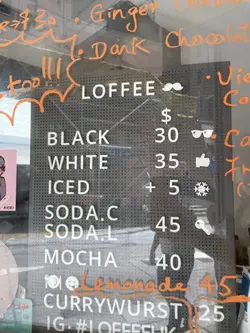 • Ginger
• Dark Chocolat
too!!!
LOFFEE
$
BLACK 30
WHITE 35
ICED + 5
SODA.C
SODA.L 45
MOCHA 40
Lemonade 45
CURRYWURST 25
IG:#LOFFEEHK